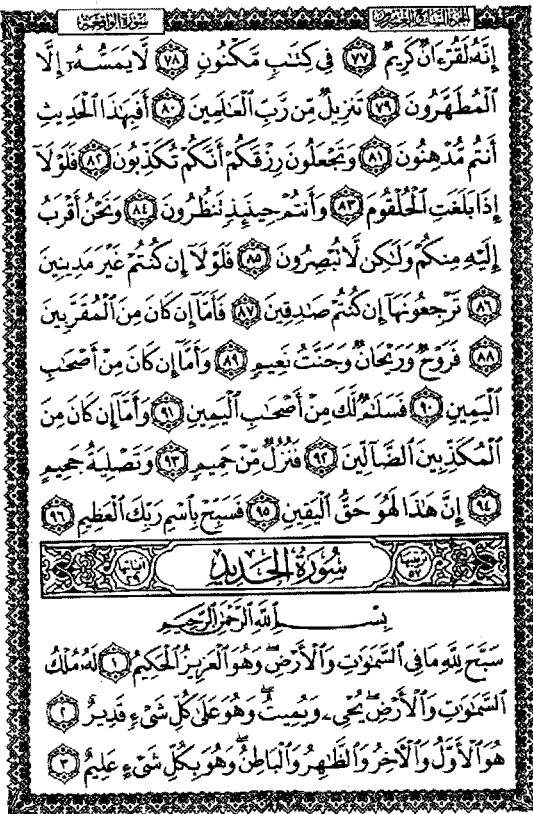 سورة الواقعة الجزء السابع والعشرون
إِنَّهُ لَقُرْءَانٌ كَرِيمٌ ٧٧ فِي كِتَٰبٍ مَّكْنُونٍ ٧٨ لَّا يَمَسُّهُۥٓ إِلَّا
الْمُطَهَّرُونَ ٧٩ تَنزِيلٌ مِّن رَّبِّ الْعَٰلَمِينَ ٨٠ أَفَبِهَٰذَا الْحَدِيثِ
أَنتُم مُّدْهِنُونَ ٨١ وَتَجْعَلُونَ رِزْقَكُمْ أَنَّكُمْ تُكَذِّبُونَ ٨٢ فَلَوْلَآ
إِذَا بَلَغَتِ الْحُلْقُومَ ٨٣ وَأَنتُمْ حِينَئِذٍ تَنظُرُونَ ٨٤ وَنَحْنُ أَقْرَبُ
إِلَيْهِ مِنكُمْ وَلَٰكِن لَّا تُبْصِرُونَ ٨٥ فَلَوْلَآ إِن كُنتُمْ غَيْرَ مَدِينِينَ
٨٦ تَرْجِعُونَهَآ إِن كُنتُمْ صَٰدِقِينَ ٨٧ فَأَمَّآ إِن كَانَ مِنَ الْمُقَرَّبِينَ
٨٨ فَرَوْحٌ وَرَيْحَانٌ وَجَنَّتُ نَعِيمٍ ٨٩ وَأَمَّآ إِن كَانَ مِنْ أَصْحَٰبِ
الْيَمِينِ ٩٠ فَسَلَٰمٌ لَّكَ مِنْ أَصْحَٰبِ الْيَمِينِ ٩١ وَأَمَّآ إِن كَانَ مِنَ
الْمُكَذِّبِينَ الضَّآلِّينَ ٩٢ فَنُزُلٌ مِّنْ حَمِيمٍ ٩٣ وَتَصْلِيَةُ جَحِيمٍ
٩٤ إِنَّ هَٰذَا لَهُوَ حَقُّ الْيَقِينِ ٩٥ فَسَبِّحْ بِاسْمِ رَبِّكَ الْعَظِيمِ ٩٦
ترتيبها ٥٧ سُورَةُ الْحَدِيدِ آياتها ٢٩
بِسْمِ اللَّهِ الرَّحْمَٰنِ الرَّحِيمِ
سَبَّحَ لِلَّهِ مَا فِي السَّمَٰوَٰتِ وَالْأَرْضِ ۖ وَهُوَ الْعَزِيزُ الْحَكِيمُ ١ لَهُۥ مُلْكُ
السَّمَٰوَٰتِ وَالْأَرْضِ ۖ يُحْيِۦ وَيُمِيتُ ۖ وَهُوَ عَلَىٰ كُلِّ شَيْءٍ قَدِيرٌ ٢
هُوَ الْأَوَّلُ وَالْءَاخِرُ وَالظَّٰهِرُ وَالْبَاطِنُ ۖ وَهُوَ بِكُلِّ شَيْءٍ عَلِيمٌ ٣